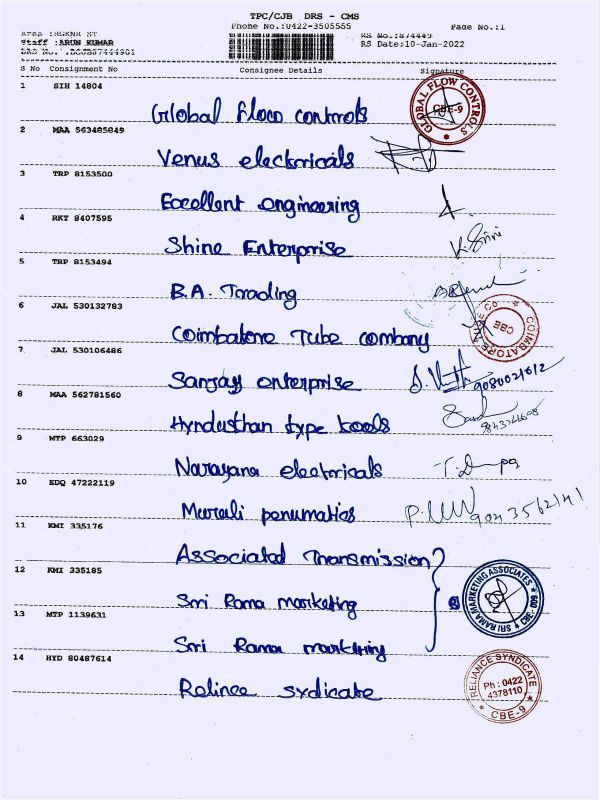 TPC/CJB DRS - CMS
Phone No.:0422-3505555 Page No.:1
Staff :ARUN KUMAR RS Date:10-Jan-2022
S No Consignment No Consignee Details Signature
1 SIH 14804 Global Flow controls
GLOBAL FLOW CONTROLS CBE-9
2 MAA 563485849 Venus electricals
3 TRP 8153500 Excellent engineering
4 RKT 8407595 Shine Enterprise
5 TRP 8153494 B.A. Trading
6 JAL 530132783 Coimbatore Tube combany
CBE
7 JAL 530106486 Sanjay enterprise
8 MAA 562781560 Hyndusthan type tools
9 MTP 663029 Narayana electricals
10 EDQ 47222119 Murali penumatics
11 KMI 335176 Associated Transmission
12 KMI 335185 Sri Rama marketing
SRI RAMA MARKETING ASSOCIATES
13 MTP 1139631 Sri Rama markting
14 HYD 80487614 Relince sydicate
RELIANCE SYNDICATE Ph : 0422 4378110 CBE-9